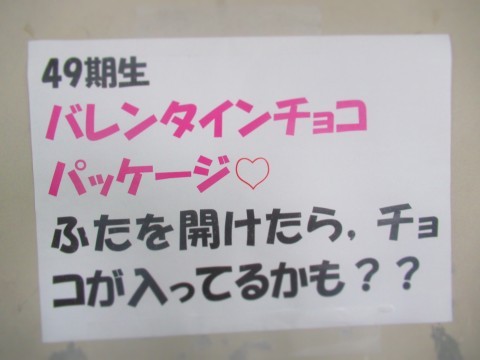 49期生
バレンタインチョコ
パッケージ♡
ふたを開けたら,チョ
コが入ってるかも??